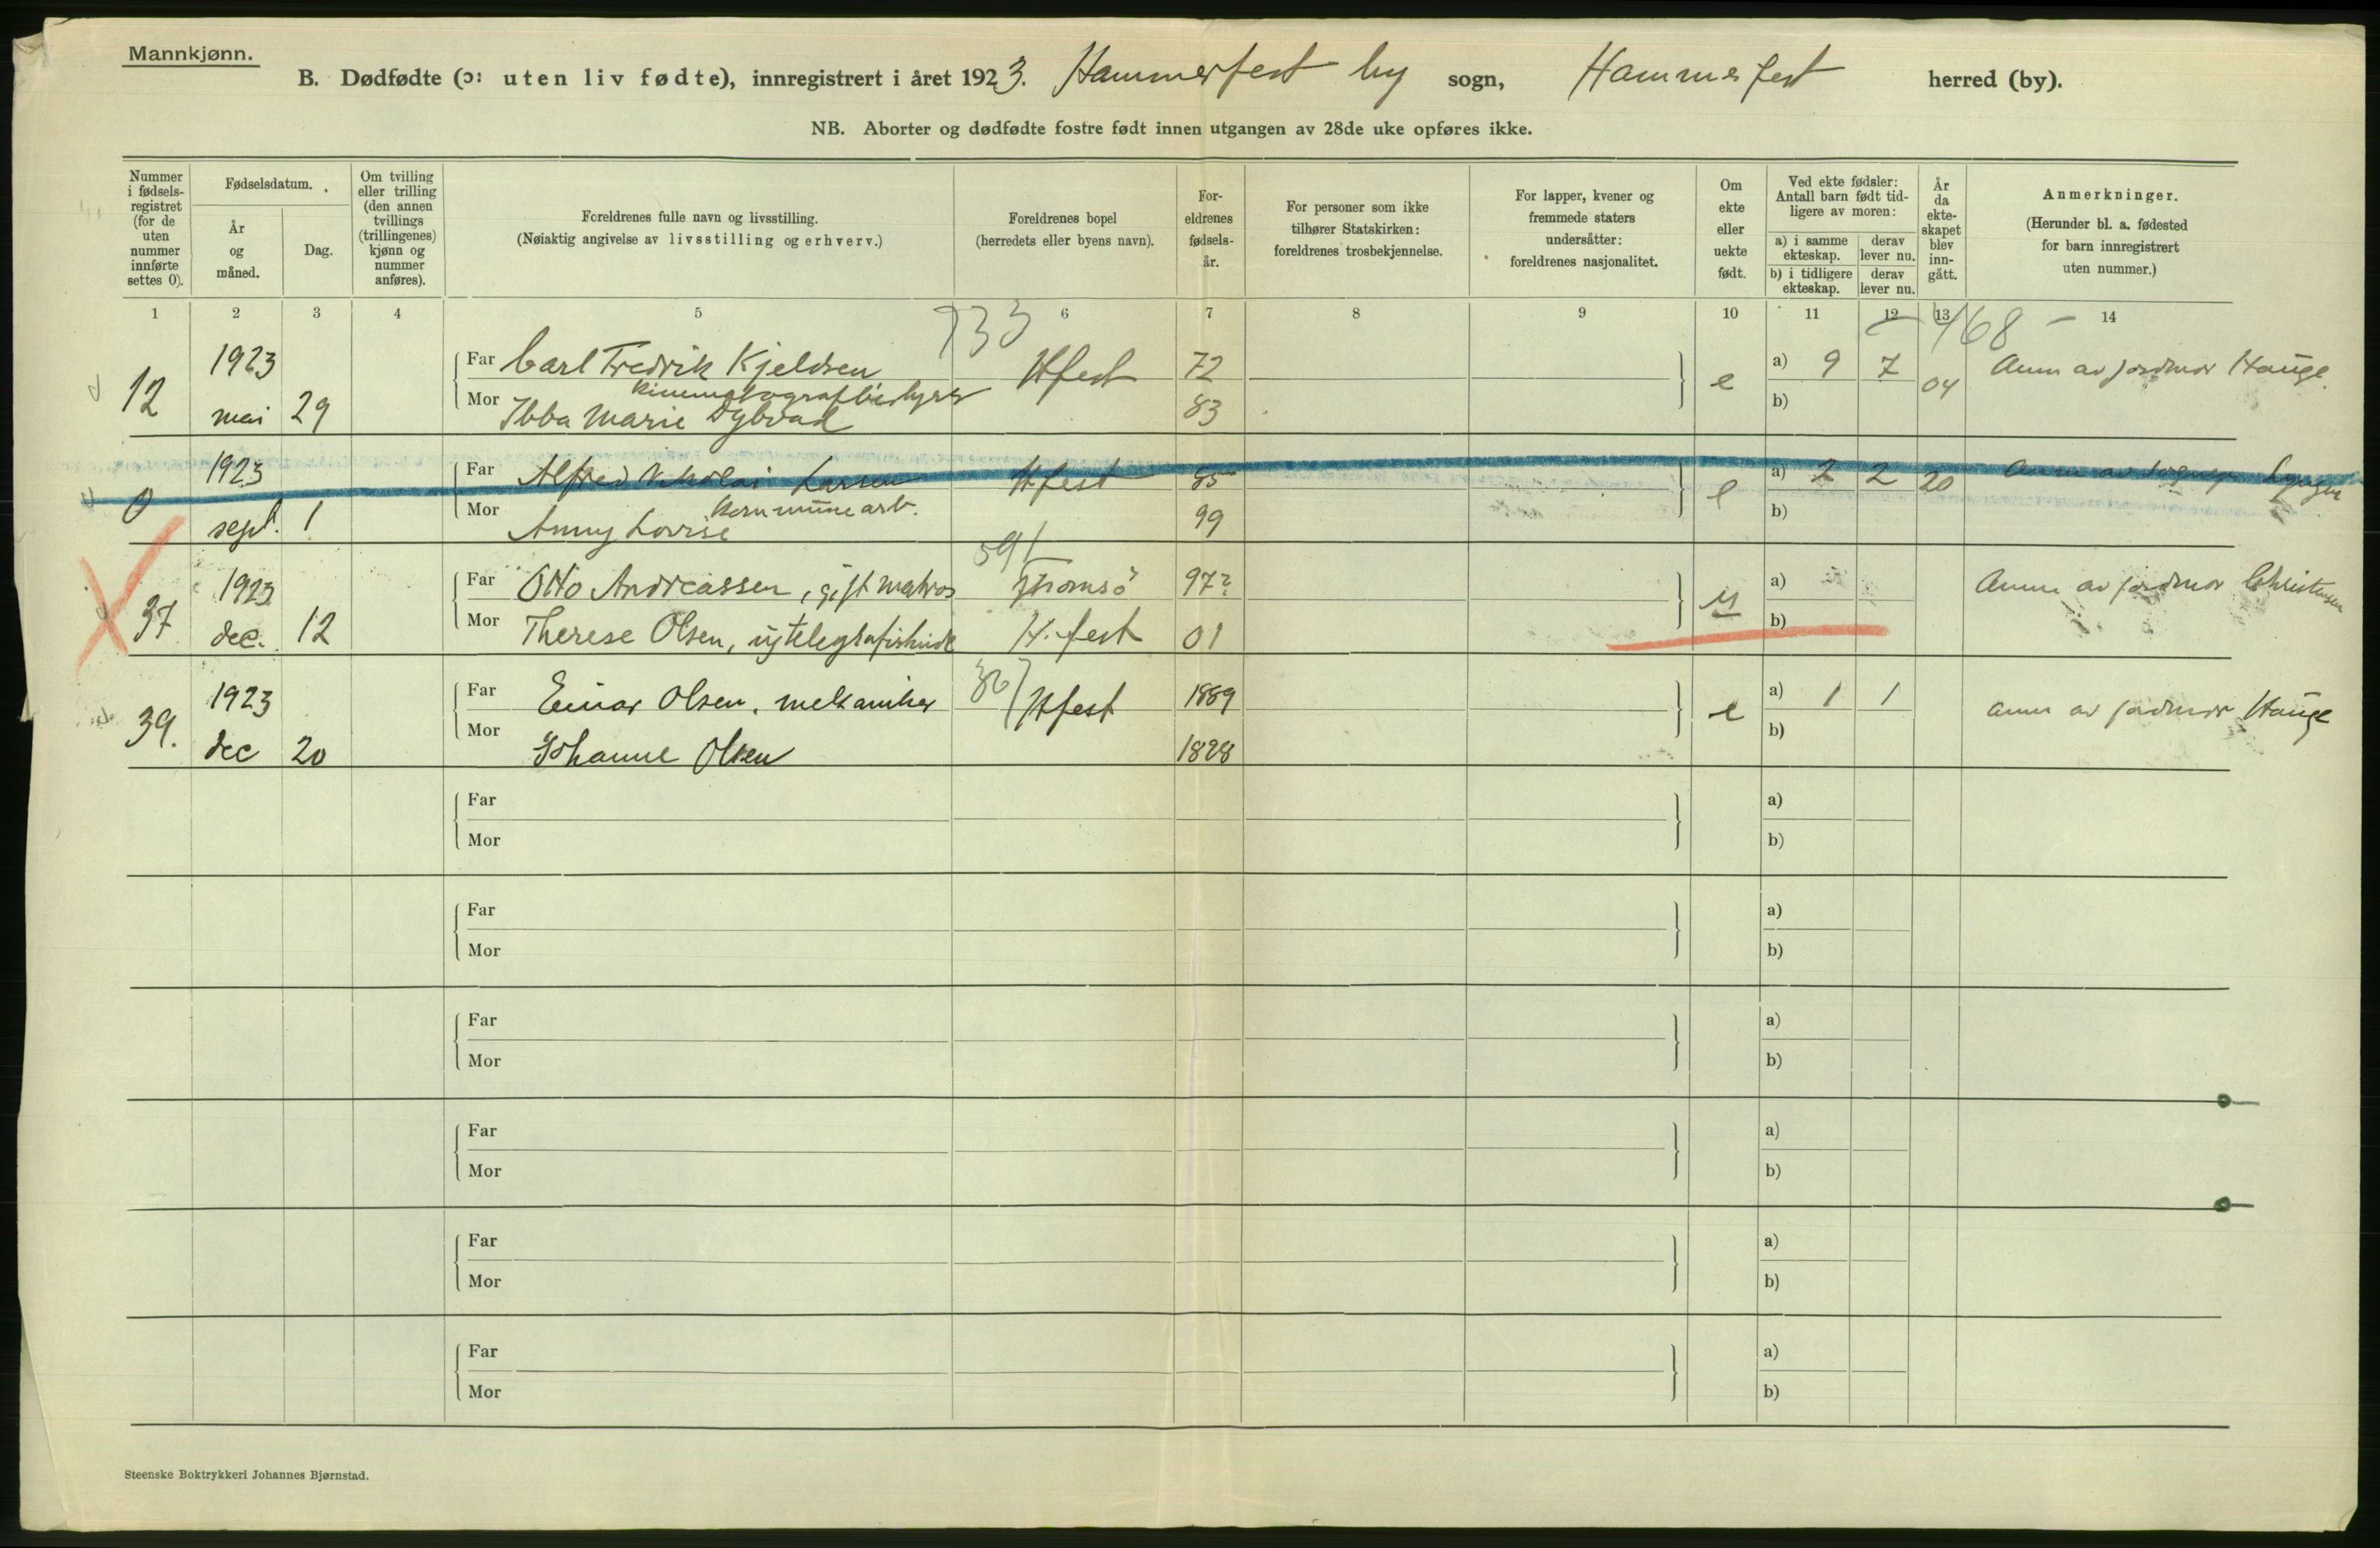 Mannkjønn.
B. Dødfødte (ɔ: uten liv fødte), innregistrert i året 1923. Hammerfest by sogn, Hammerfest herred (by).
NB. Aborter og dødfødte fostre født innen utgangen av 28de uke opføres ikke.
Nummer i fødsels- registret (for de uten nummer innførte settes 0).
Fødselsdatum.
År og måned.
Dag.
Om tvilling eller trilling (den annen tvillings (trillingenes) kjønn og nummer anføres).
Foreldrenes fulle navn og livsstilling.
(Nøiaktig angivelse av livsstilling og erhverv.)
Foreldrenes bopel
(herredets eller byens navn).
For- eldrenes fødsels- år.
For personer som ikke tilhører Statskirken: foreldrenes trosbekjennelse.
For lapper, kvener og fremmede staters undersåtter: foreldrenes nasjonalitet.
Om ekte eller uekte født.
Ved ekte fødsler: Antall barn født tid- ligere av moren:
a) i samme ekteskap.
derav lever nu.
b) i tidligere ekteskap.
derav lever nu.
År da ekte- skapet blev inn- gått.
Anmerkninger.
(Herunder bl. a. fødested for barn innregistrert uten nummer.)
1 2 3 4 5 6 7 8 9 10 11 12 13 14
733 468
12 1923 mai 29
Far Carl Fredrik Kjeldsen Hfest 72 e a) 9 7 04 Anm av jordmor Hauge
kinematografbestyrer
Mor Ibba Marie Dybvad 83 b)
0 1923 sept. 1
Far Alfred Nikolai Larsen Hfest 85 e a) 2 2 20 Anm av
kommunearb.
Mor Anny Lovise 99 b)
591
37 1923 dec. 12
Far Otto Andreassen, gift matros Tromsö 97? u a) Anm av jordmor Christensen
Mor Therese Olsen, ug telegrafistinde H.fest 01 b)
367
39. 1923 dec 20
Far Einar Olsen, mekaniker Hfest 1889 e a) 1 1 anm av jordmor Hauge
Mor Johanne Olsen 1898 b)
Far a)
Mor b)
Far a)
Mor b)
Far a)
Mor b)
Far a)
Mor b)
Far a)
Mor b)
Far a)
Mor b)
Steenske Boktrykkeri Johannes Bjørnstad.